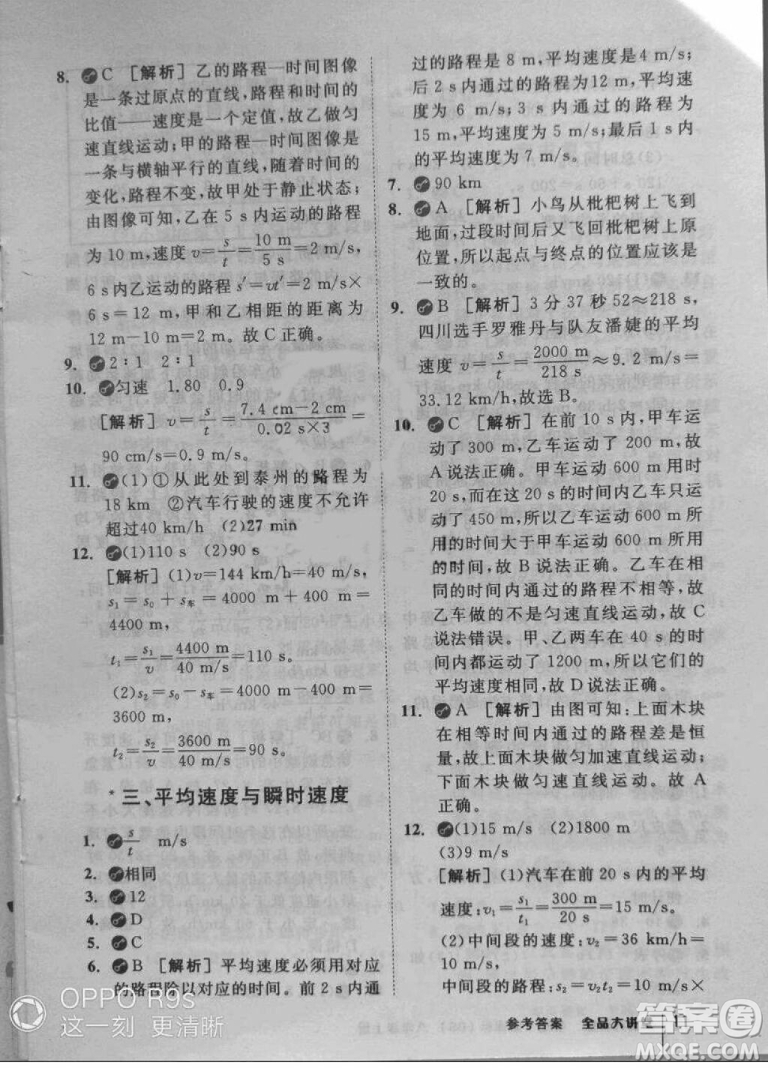 8. C [解析] 乙的路程—时间图像
是一条过原点的直线，路程和时间的
比值——速度是一个定值，故乙做匀
速直线运动；甲的路程—时间图像是
一条与横轴平行的直线，随着时间的
变化，路程不变，故甲处于静止状态；
由图像可知，乙在 5 s 内运动的路程
为 10 m，速度 v=s/t=10 m/5 s=2 m/s，
6 s 内乙运动的路程 s′=vt′=2 m/s×
6 s=12 m，甲和乙相距的距离为
12 m-10 m=2 m。故 C 正确。
9. 2∶1 2∶1
10. 匀速 1.80 0.9
[解析] v=s/t=7.4 cm-2 cm/0.02 s×3=
90 cm/s=0.9 m/s。
11. (1)①从此处到泰州的路程为
18 km ②汽车行驶的速度不允许
超过40 km/h (2)27 min
12. (1)110 s (2)90 s
[解析] (1)v=144 km/h=40 m/s，
s₁=s₀+s车=4000 m+400 m=
4400 m，
t₁=s₁/v=4400 m/40 m/s=110 s。
(2)s₂=s₀-s车=4000 m-400 m=
3600 m，
t₂=s₂/v=3600 m/40 m/s=90 s。
*三、平均速度与瞬时速度
1. s/t m/s
2. 相同
3. 12
4. D
5. C
6. B [解析] 平均速度必须用对应
的路程除以对应的时间。前 2 s 内通
过的路程是 8 m，平均速度是4 m/s；
后 2 s 内通过的路程为12 m，平均速
度为 6 m/s；3 s 内通过的路程为
15 m，平均速度为 5 m/s；最后 1 s 内
的平均速度为 7 m/s。
7. 90 km
8. A [解析] 小鸟从枇杷树上飞到
地面，过段时间后又飞回枇杷树上原
位置，所以起点与终点的位置应该是
一致的。
9. B [解析] 3 分 37 秒 52≈218 s，
四川选手罗雅丹与队友潘婕的平均
速度 v=s/t=2000 m/218 s≈9.2 m/s=
33.12 km/h，故选 B。
10. C [解析] 在前 10 s 内，甲车运
动了 300 m，乙车运动了 200 m，故
A 说法正确。甲车运动 600 m 用时
20 s，而在这 20 s 的时间内乙车只运
动了 450 m，所以乙车运动 600 m 所
用的时间大于甲车运动 600 m 所用
的时间，故 B 说法正确。乙车在相
同的时间内通过的路程不相等，故
乙车做的不是匀速直线运动，故 C
说法错误。甲、乙两车在 40 s 的时
间内运动了 1200 m，所以它们的
平均速度相同，故 D 说法正确。
11. A [解析] 由图可知：上面木块
在相等时间内通过的路程差是恒
量，故上面木块做匀加速直线运动；
下面木块做匀速直线运动。故 A
正确。
12. (1)15 m/s (2)1800 m
(3)9 m/s
[解析] (1)汽车在前 20 s 内的平均
速度：v₁=s₁/t₁=300 m/20 s=15 m/s。
(2)中间段的速度：v₂=36 km/h=
10 m/s，
中间段的路程：s₂=v₂t₂=10 m/s×
OPPO R9s
这一刻 更清晰
参考答案 全品大讲堂
答案圈
MXQE.COM